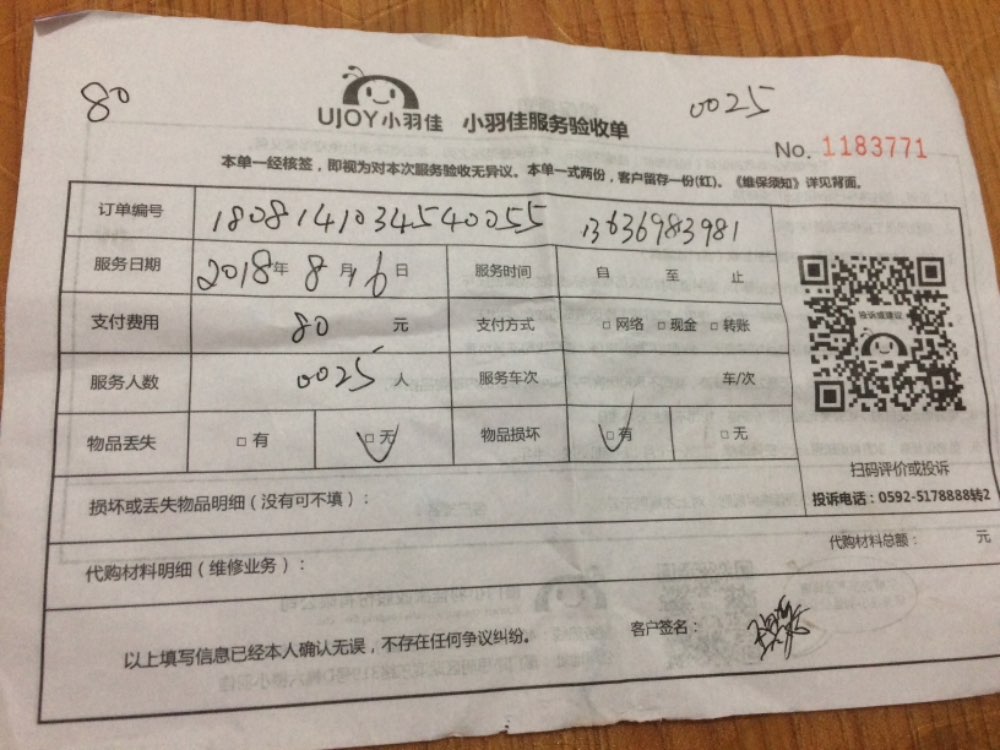 80
0025
UJOY小羽佳 小羽佳服务验收单
No. 1183771
本单一经核签，即视为对本次服务验收无异议。本单一式两份，客户留存一份(红)。《维保须知》详见背面。
订单编号 18081410345540055 13636983981
服务日期 2018年 8月16日 服务时间 自 至 止
支付费用 80 元 支付方式 □网络 □现金 □转账
投诉或建议
服务人数 0025 人 服务车次 车/次
物品丢失 □有 □无 物品损坏 □有 □无
扫码评价或投诉
投诉电话：0592-5178888转2
损坏或丢失物品明细（没有可不填）：
代购材料总额： 元
代购材料明细（维修业务）：
以上填写信息已经本人确认无误，不存在任何争议纠纷。 客户签名：